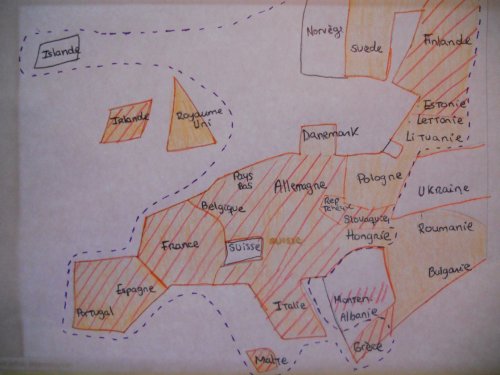 Islande
Norvège
Suède
Finlande
Irlande
Royaume
Uni
Estonie
Lettonie
Lituanie
Danemark
Pays
Bas
Allemagne
Pologne
Ukraine
Belgique
Rep
Tchèque
Slovaquie
Hongrie
Roumanie
France
Suisse
Suisse
Bulgarie
Espagne
Portugal
Italie
Monten
Albanie
Grèce
Malte